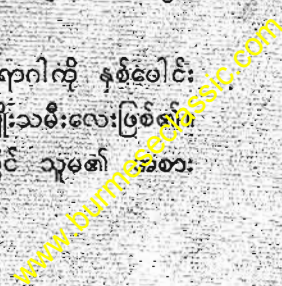 ရာဂါကို နှစ်ပေါင်း
မျိုးသမီးလေးဖြစ်၏။
င် သူမ၏ အစား
www.burmeseclassic.com